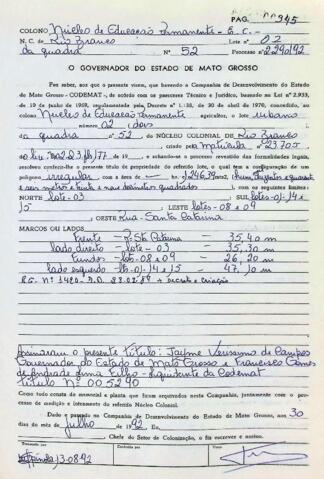 PAG. 345
COLONO Núcleo de Educação Permanente - E.C. -
N. C. de Rio Branco Lote nº 02
da quadra Nº 52 Processo nº 2290/92
O GOVERNADOR DO ESTADO DE MATO GROSSO
Faz saber, aos que o presente virem, que havendo a Companhia de Desenvolvimento do Estado
de Mato Grosso - CODEMAT -, de acôrdo com os pareceres Técnico e Jurídico, baseado na Lei n° 2.933,
de 19 de junho de 1969, regulamentada pelo Decreto n° 1.138, de 30 de abril de 1970, concedido, ao colono
Núcleo de Educação Permanente agricultor, o lote urbano
número 02 dois
da quadra nº 52 DO NÚCLEO COLONIAL DE Rio Branco
criado pela Matrícula nº 23.705
e achando-se o processo revestido das formalidades legais,
resolveu conferir-lhe o presente título de propriedade do referido lote, o qual tem a configuração de um
polígono irregular com a área de — ha.
com os seguintes limites:
NORTE lote-03 SUL lotes-01-14 e
15 LESTE lotes-08 e 09
OESTE Rua-Santa Catarina
MARCOS OU LADOS
Frente - R. Sta Catarina - 35,40 m
lado direito - lote - 03 - 35,30 m
Fundos - lotes-08 e 09 - 26,20 m
lado esquerdo - lts-01-14 e 15 - 47,10 m
Assinaram o presente Título: Jayme Veríssimo de Campos
Governador do Estado de Mato Grosso e Francisco Gomes
de Andrade Lima Filho - Liquidante da Codemat
Título Nº 005290
Como tudo consta do memorial e planta que ficam arquivados nesta Companhia, juntamente com o processo de medição e loteamento do referido Núcleo Colonial.
Dado e passado na Companhia de Desenvolvimento do Estado de Mato Grosso, aos 30
dias do mês de julho de 1992 Eu,
Chefe do Setor de Colonização, o fiz escrever e assino.
13.08.92